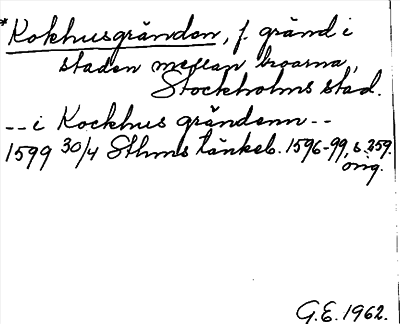 *Kokhusgränden, f. gränd i
staden mellan broarna,
Stockholms stad.
-- i Kockhus grändenn --
1599 30/4 Sthms tänkeb. 1596-99, s. 259.
orig.
G.E. 1962.